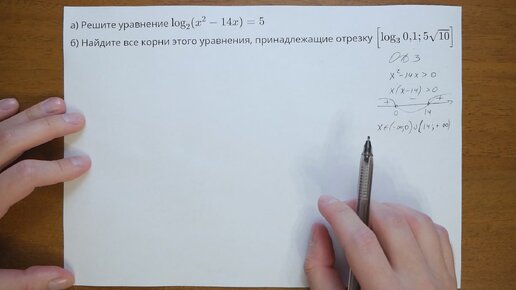 а) Решите уравнение log₂(x² − 14x) = 5
б) Найдите все корни этого уравнения, принадлежащие отрезку [log₃ 0,1; 5√10]
ОДЗ
x²-14x>0
x(x-14)>0
+ - +
0 14
x∈(-∞;0)∪(14;+∞)